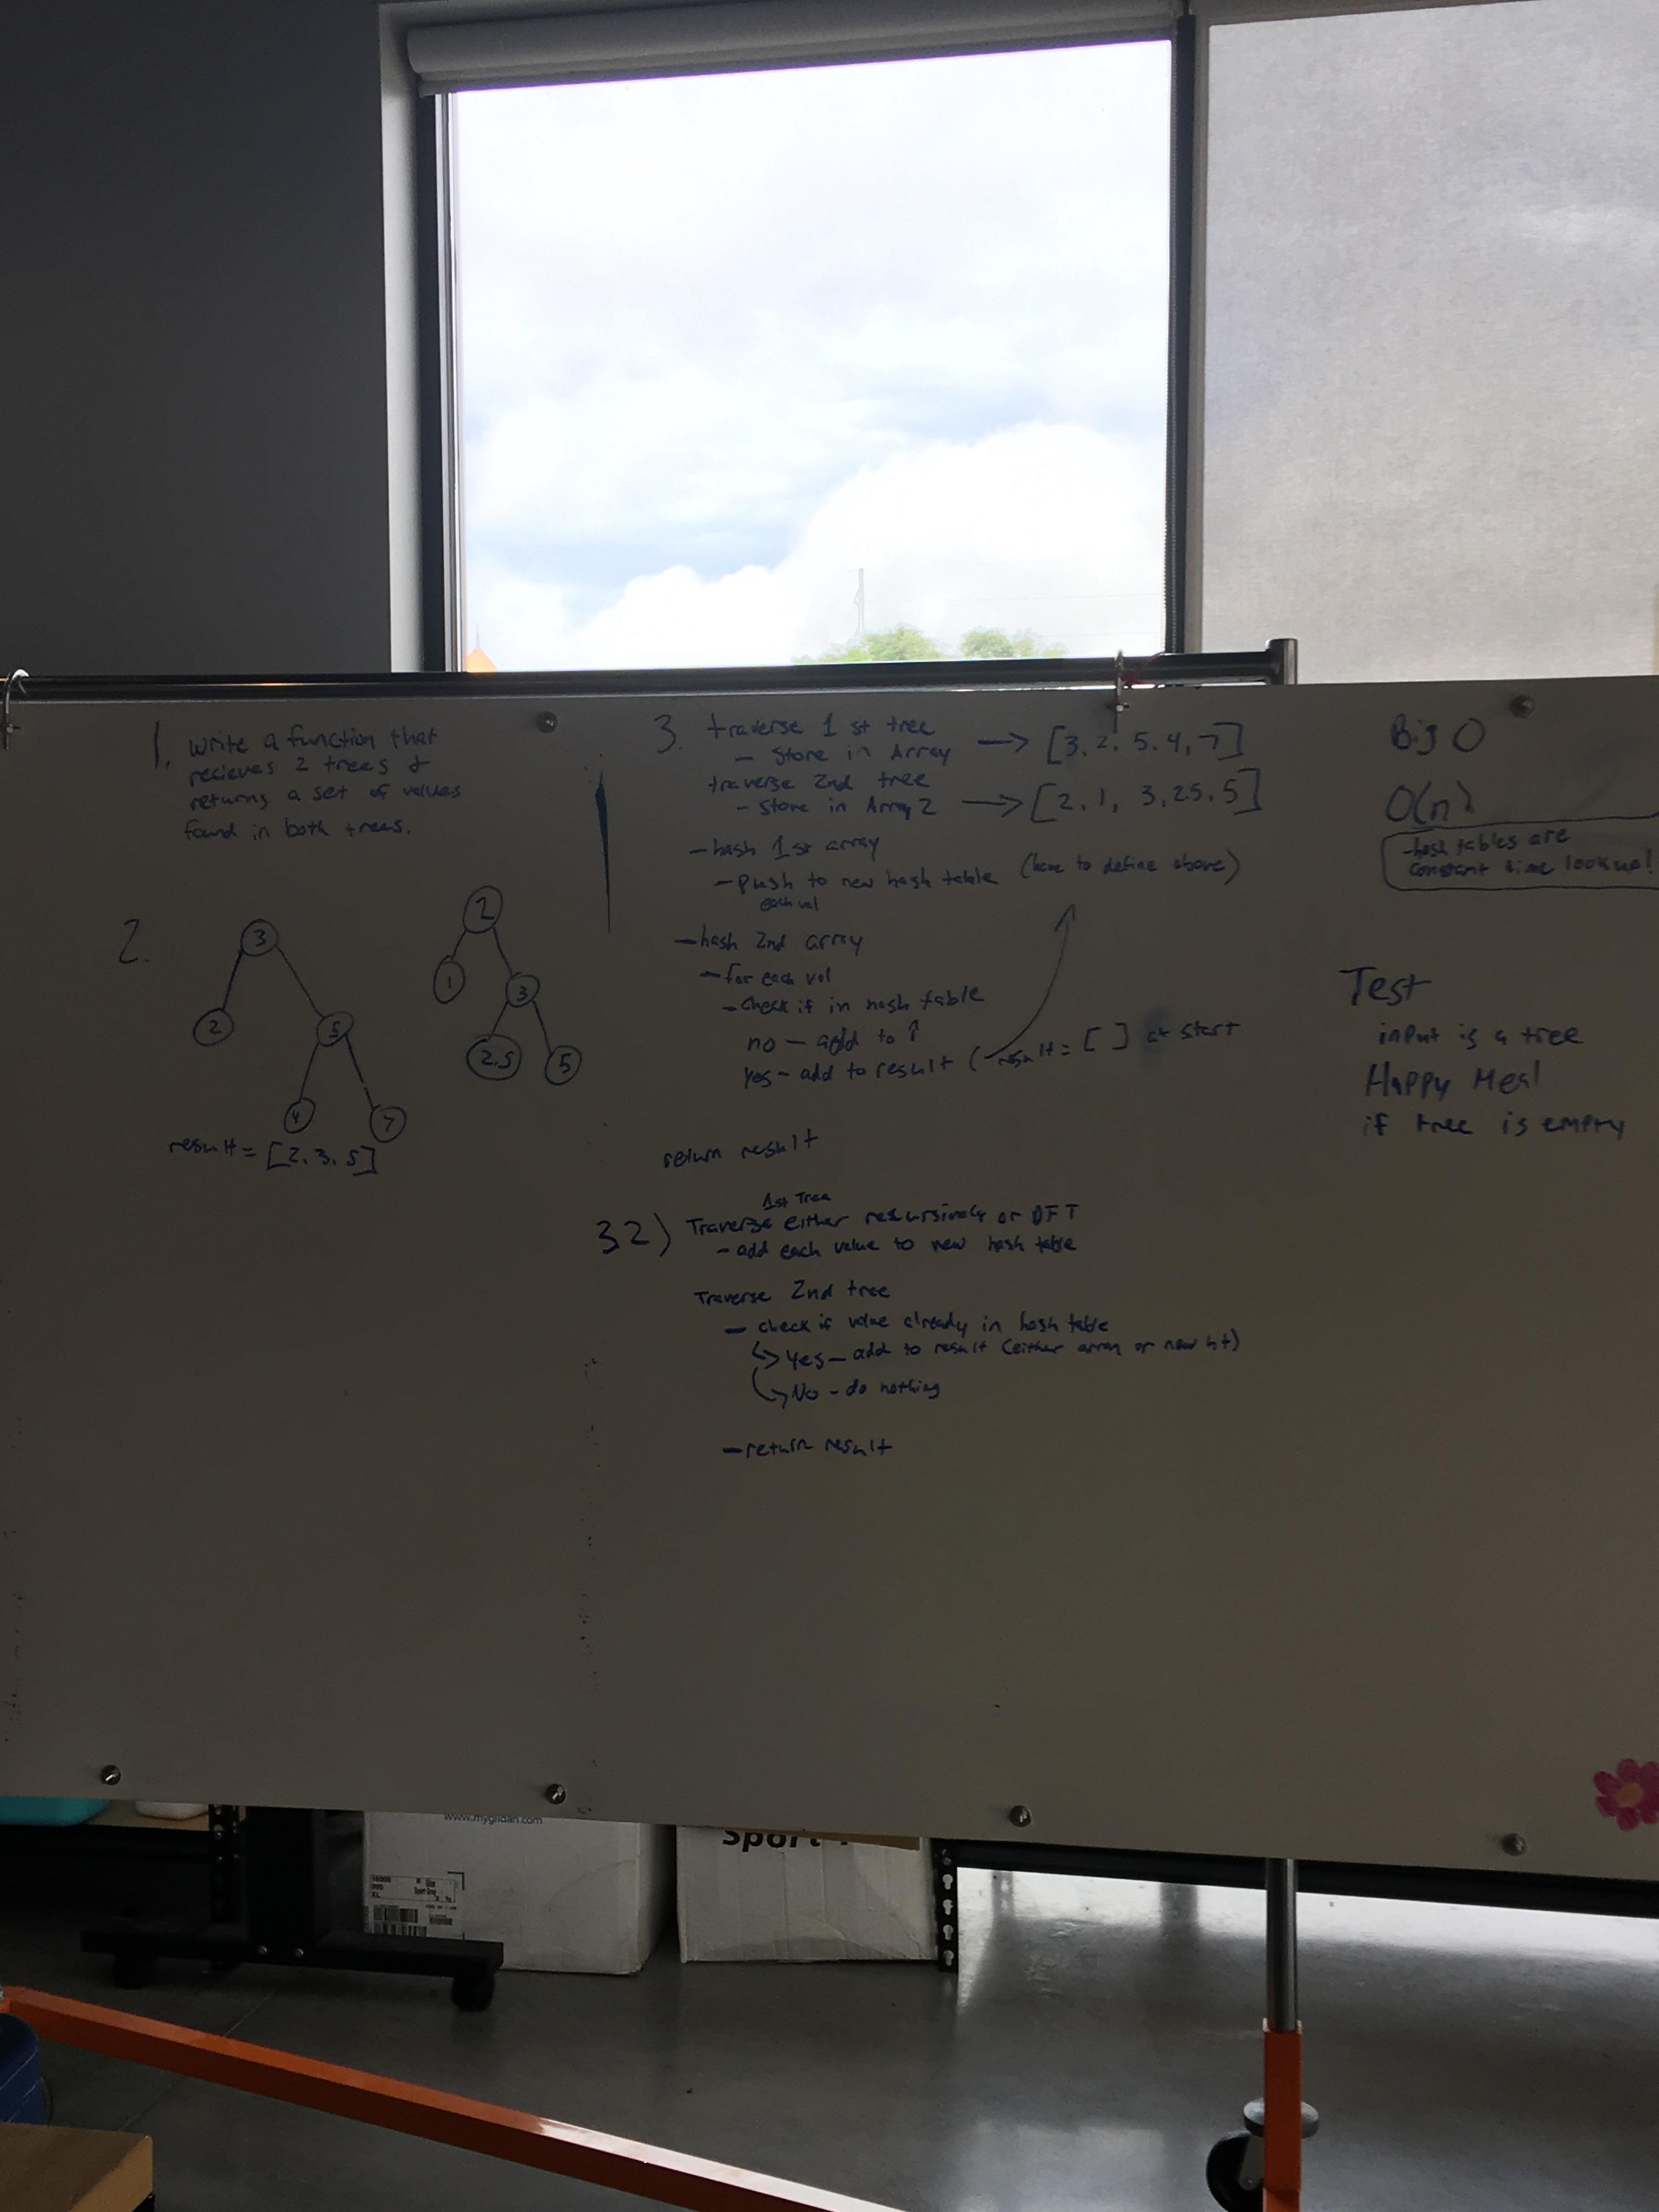 1. Write a function that
recieves 2 trees &
returns a set of values
found in both trees.
2.
3
2
5
4
7
result = [2, 3, 5]
2
1
3
2.5
5
3. traverse 1st tree
- Store in Array → [3, 2, 5, 4, 7]
traverse 2nd tree
- Store in Array 2 → [2, 1, 3, 2.5, 5]
- hash 1st array
- push to new hash table (have to define above)
each val
- hash 2nd array
- for each val
- check if in hash table
no - add to ↑
yes - add to result ( result = [ ] at start
return result
1st Tree
32) Traverse either recursively or DFT
- add each value to new hash table
Traverse 2nd tree
- check if value already in hash table
↳ Yes - add to result (either array or new ht)
↳ No - do nothing
- return result
Big O
O(n)
- hash tables are
constant time lookup!
Test
input is a tree
Happy Meal
if tree is empty
www.mygildan.com
Sport